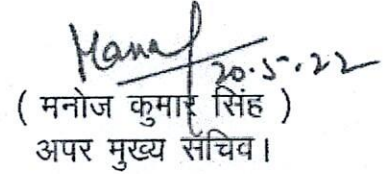 20.5.22
( मनोज कुमार सिंह )
अपर मुख्य सचिव।